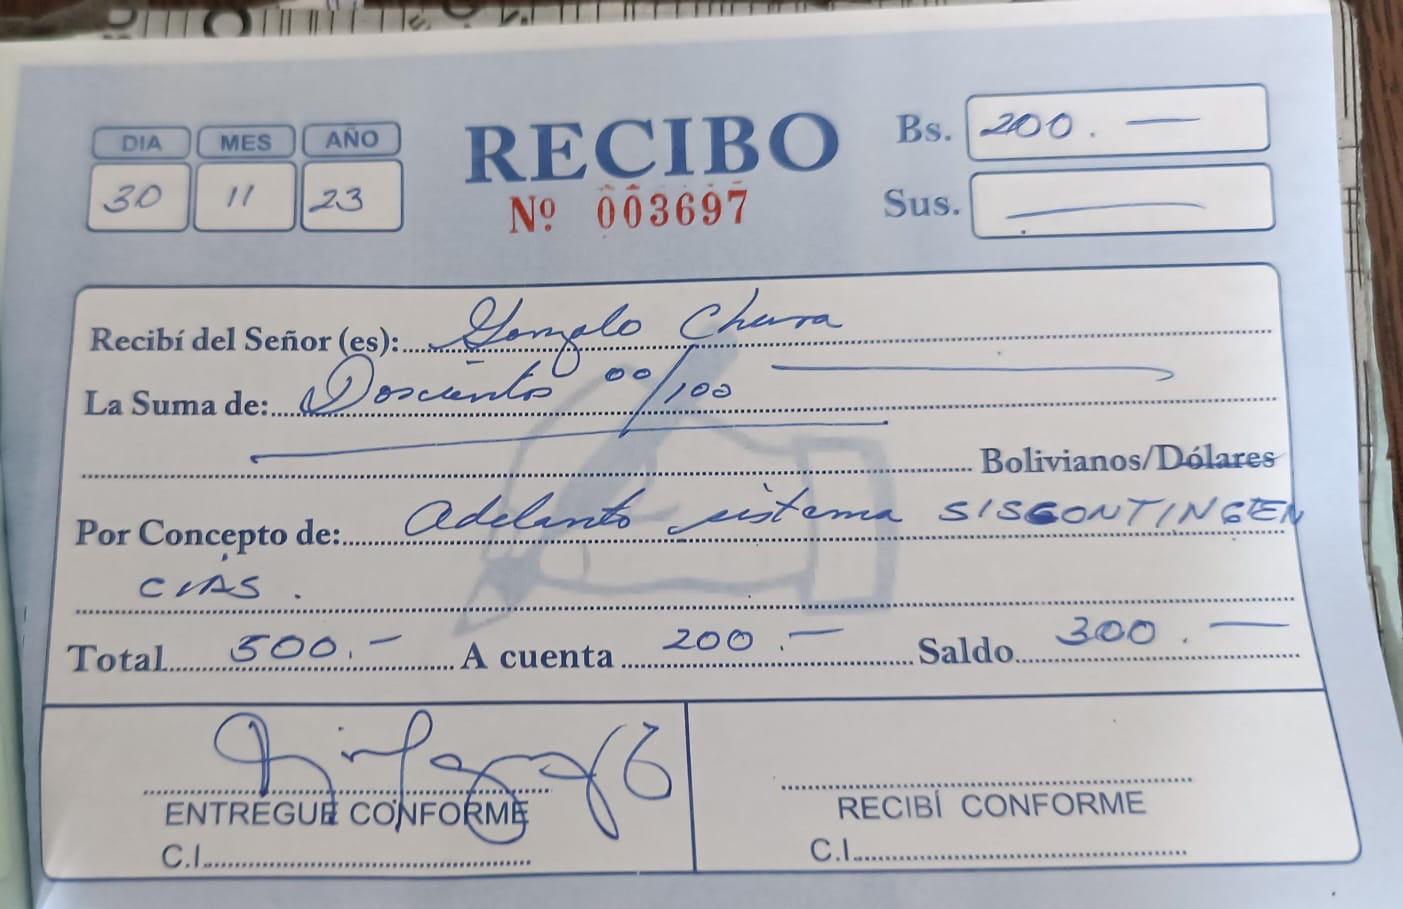 DIA MES AÑO
30 11 23
RECIBO
Nº 003697
Bs. 200. —
Sus. —
Recibí del Señor (es): Gonzalo Churra
La Suma de: Doscientos 00/100
Bolivianos/Dólares
Por Concepto de: Adelanto sistema SISCONTINGEN
CIAS.
Total 500.- A cuenta 200.— Saldo 300.—
ENTREGUE CONFORME
C.I.
RECIBÍ CONFORME
C.I.